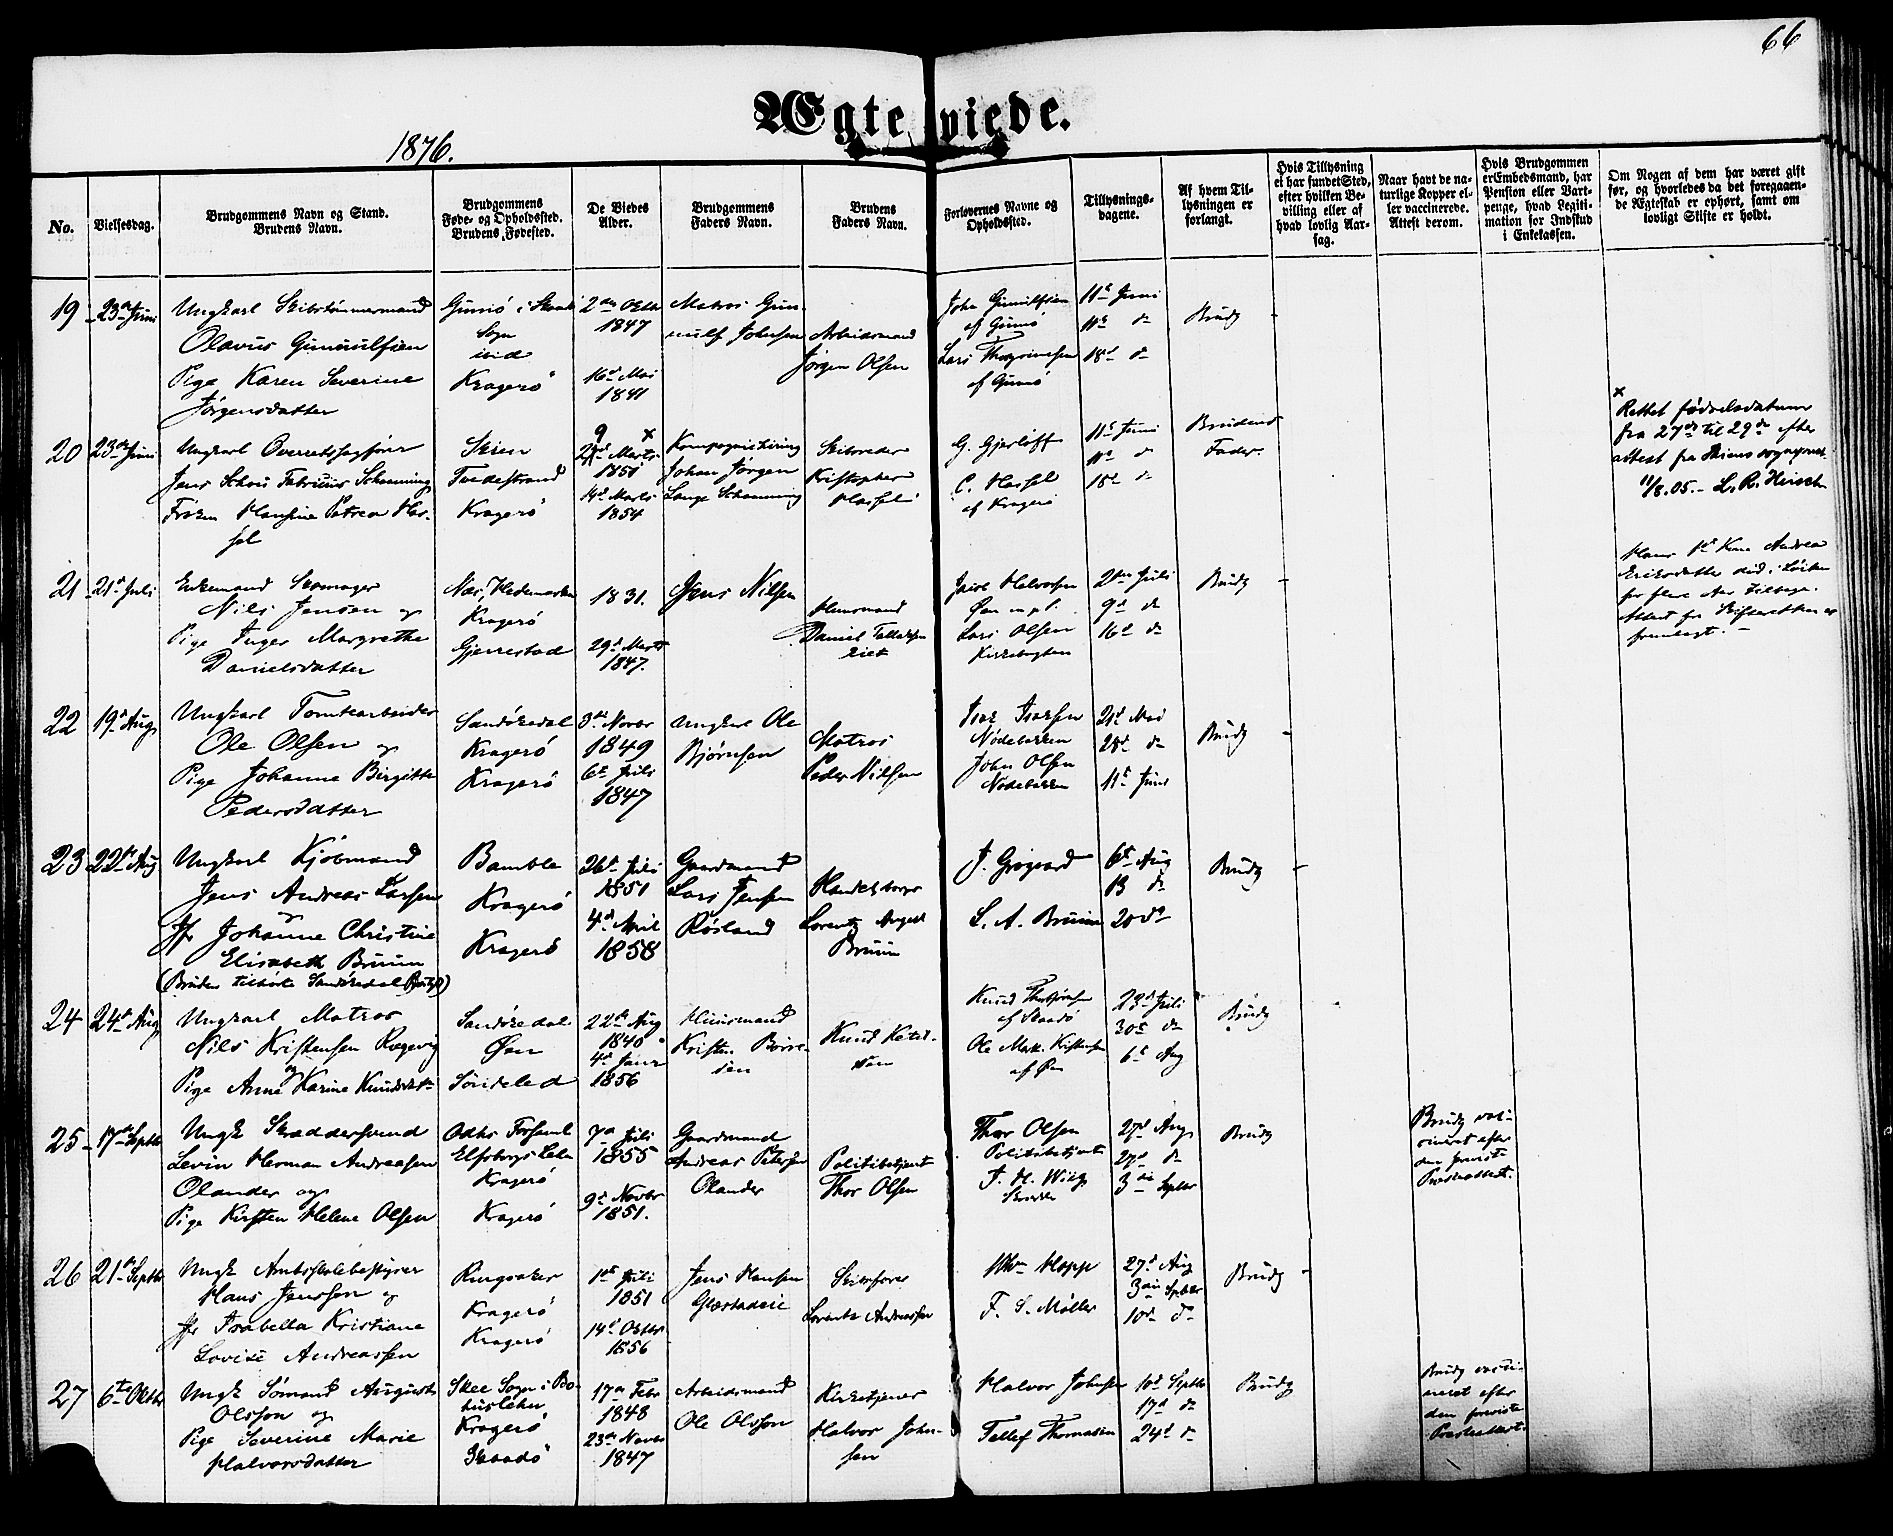 66
Ægteviede.
1876.
No.
Vielsesdag.
Brudgommens Navn og Stand.
Brudens Navn.
Brudgommens
Føde- og Opholdssted.
Brudens Fødested.
De Viedes
Alder.
Brudgommens
Faders Navn.
Brudens
Faders Navn.
Forlovernes Navne og
Opholdssted.
Tillysnings-
dagene.
Af hvem Til-
lysningen er
forlangt.
Hvis Tillysning
ei har fundet Sted,
efter hvilken Be-
villing eller af
hvad lovlig Aar-
sag.
Naar havt de na-
turlige Kopper el-
ler vaccinerede.
Attest derom.
Hvis Brudgommen
er Embedsmand, har
Pension eller Vart-
penge, hvad Legiti-
mation for Indskud
i Enkekassen.
Om Nogen af dem har været gift
før, og hvorledes da det foregaaen-
de Ægteskab er ophørt, samt om
lovligt Skifte er holdt.
19
23de Juni
Ungkarl Skibstømmermand
Olavus Gunnulfsen
Pige Karen Severine
Jørgensdatter
Gumø i Skaatø
Sogn
Kragerø
2den Oktbr
1847
16de Mai
1841
Matros Gun-
nulf Johnsen
Arbeidsmand
Jørgen Olsen
John Gunulfsen
af Gumø
Lars Thorgrimsen
af Gumø
11te Juni
11te do
18de do
Brudg
20
23de Juni
Ungkarl Overretssagfører
Jens Schou Fabricius Schønning
Frøken Hansine Petrea Has-
sel
Skien
Tvedestrand
Kragerø
9 x
Marts
1851
14de Marts
1854
Kompagnikirurg
Johan Jørgen
Lange Schønning
Skibsreder
Kristopher
Hassel
G. Gjerløff
C. Hassel
af Kragerø
11te Juni
11te do
18de do
Brudens
Fader
x
Rettet fødselsdatum
fra 27de til 29de efter
attest fra Skiens sogneprest
11/8.05. –
21
21de Juli
Enkemand Skomager
Nils Jensen og
Pige Inger Margrethe
Danielsdatter
Næs, Hedemarken
Kragerø
Gjerrestad
1831.
29de Marts
1847.
Jens Nilsen
Huusmand
Daniel Tallaksen
Jacob Halvorsen
Øen
Lars Olsen
Kirkebugten
2den Juli
9de do
16de do
Brudg
Hans 1ste Kone Andrea
Eriksdatter død i Løiten
for flere Aar tilbage.
Attest fra Skifteretten er
fremlagt. –
22
19de Aug
Ungkarl Tomtearbeider
Ole Olsen og
Pige Johanne Birgitte
Pedersdatter
Sandøkedal
Kragerø
Kragerø
3die Novbr
1849
6te Juli
1847
Ungkarl Ole
Bjørnsen
Matros
Peder Nilsen
Isak Isaksen
Nødebakken
John Olsen
Nødebakken
21de Mai
28de do
11te Juni
Brudg
23
22de Aug
Ungkarl Kjøbmand
Jens Andreas Larsen
og
Jfr Johanne Christine
Elisabeth Bruun
(Bruden tilhørte Sandøkedal Præstgj)
Bamble
Kragerø
Kragerø
26de Juli
1851
4de April
1858
Gaardmand
Lars Jensen
Røsland
Handelsborger
Lorentz August
Bruun
J. Grøgaard
L. A. Bruun
6te Aug
13 do
20 do
Brudg
24
24de Aug
Ungkarl Matros
Nils Kristensen Rægevig
og
Pige Anne Karine Knudsdatt
Sandøkedal
Øen
Søndeled
22de Aug
1840
4de Janr
1856
Huusmand
Kristen Børre-
sen
Knud Ketel-
sen
Knud Thorbjørnsen
af Skaadø
Ole Mark. Kristensen
af Øen
23de Juli
30te do
6te Aug
Brudg
25
17de Septbr
Ungk Skræddersvend
Levin Herman Andreasen
Olander og
Pige Kirsten Helene Olsen
Odtrs Forsaml
Elfsborgs Lehn
Kragerø
Kragerø
7de Juli
1855
9de Novbr
1851.
Gaardmand
Andreas Petersen
Olander
Politibetjent
Thor Olsen
Thor Olsen
Politibetjent
F. H. Wiig
27de Aug
27de do
3die Septbr
Brudg
Brudg vac-
cineret efter
den forevist
Præsteattest.
26
21de Septbr
Ungk Amtsskolebestyrer
Hans Jenssen og
Jfr Isabella Kristiane
Lovise Andreassen
Ringsaker
Kragerø
Kragerø
1ste Juli
1851
14de Oktbr
1856
Jens Hansen
Glæstadeie
Skibsfører
Lorentz Andreassen
Hopp
F. S. Møller
27de Aug
3die Septbr
10de do
Brudg
27
6te Oktbr
Ungk Sømand August
Olsson og
Pige Severine Marie
Halvorsdatter
Skee Sogn i Bo-
huslehn
Kragerø
Skaadø
17de Febr
1848
23de Novbr
1847
Arbeidsmand
Ole Olsson
Kirketjener
Halvor John-
sen
Halvor Johnsen
Tellef Thomassen
10de Septbr
17de do
24de do
Brudg
Brudg vacci-
neret efter
den foreviste
Præsteattest.